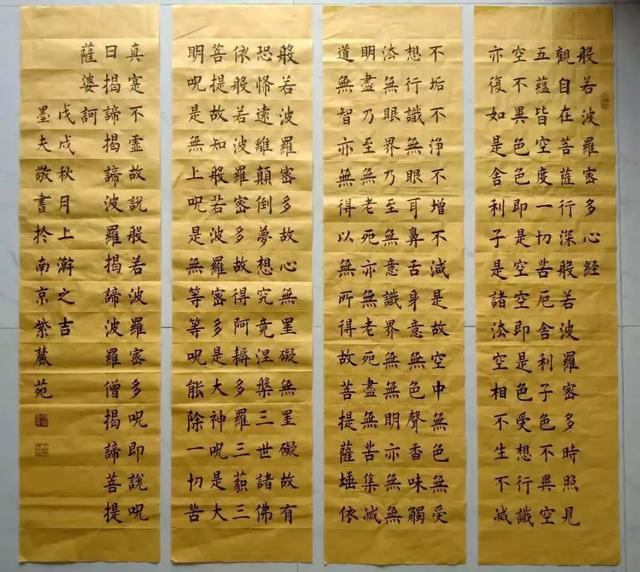 般若波羅密多心經
觀自在菩薩行深般若波羅密多時照見
五蘊皆空度一切苦厄舍利子色不異空
空不異色色即是空空即是色受想行識
亦復如是舍利子是諸法空相不生不滅
不垢不淨不增不減是故空中無色無受
想行識無眼耳鼻舌身意無色聲香味觸
法無眼界乃至無意識界無無明亦無無
明盡乃至無老死亦無老死盡無苦集滅
道無智亦無得以無所得故菩提薩埵依
般若波羅密多故心無罣礙無罣礙故有
恐怖遠離顛倒夢想究竟涅槃三世諸佛
依般若波羅密多故得阿耨多羅三藐三
菩提故知般若波羅密多是大神呪是大
明呪是無上呪是無等等呪能除一切苦
真寔不虛故說般若波羅密多呪即說呪
曰揭諦揭諦波羅揭諦波羅僧揭諦菩提
薩婆訶
戊戌秋月上澣之吉
墨夫敬書於南京紫麓苑